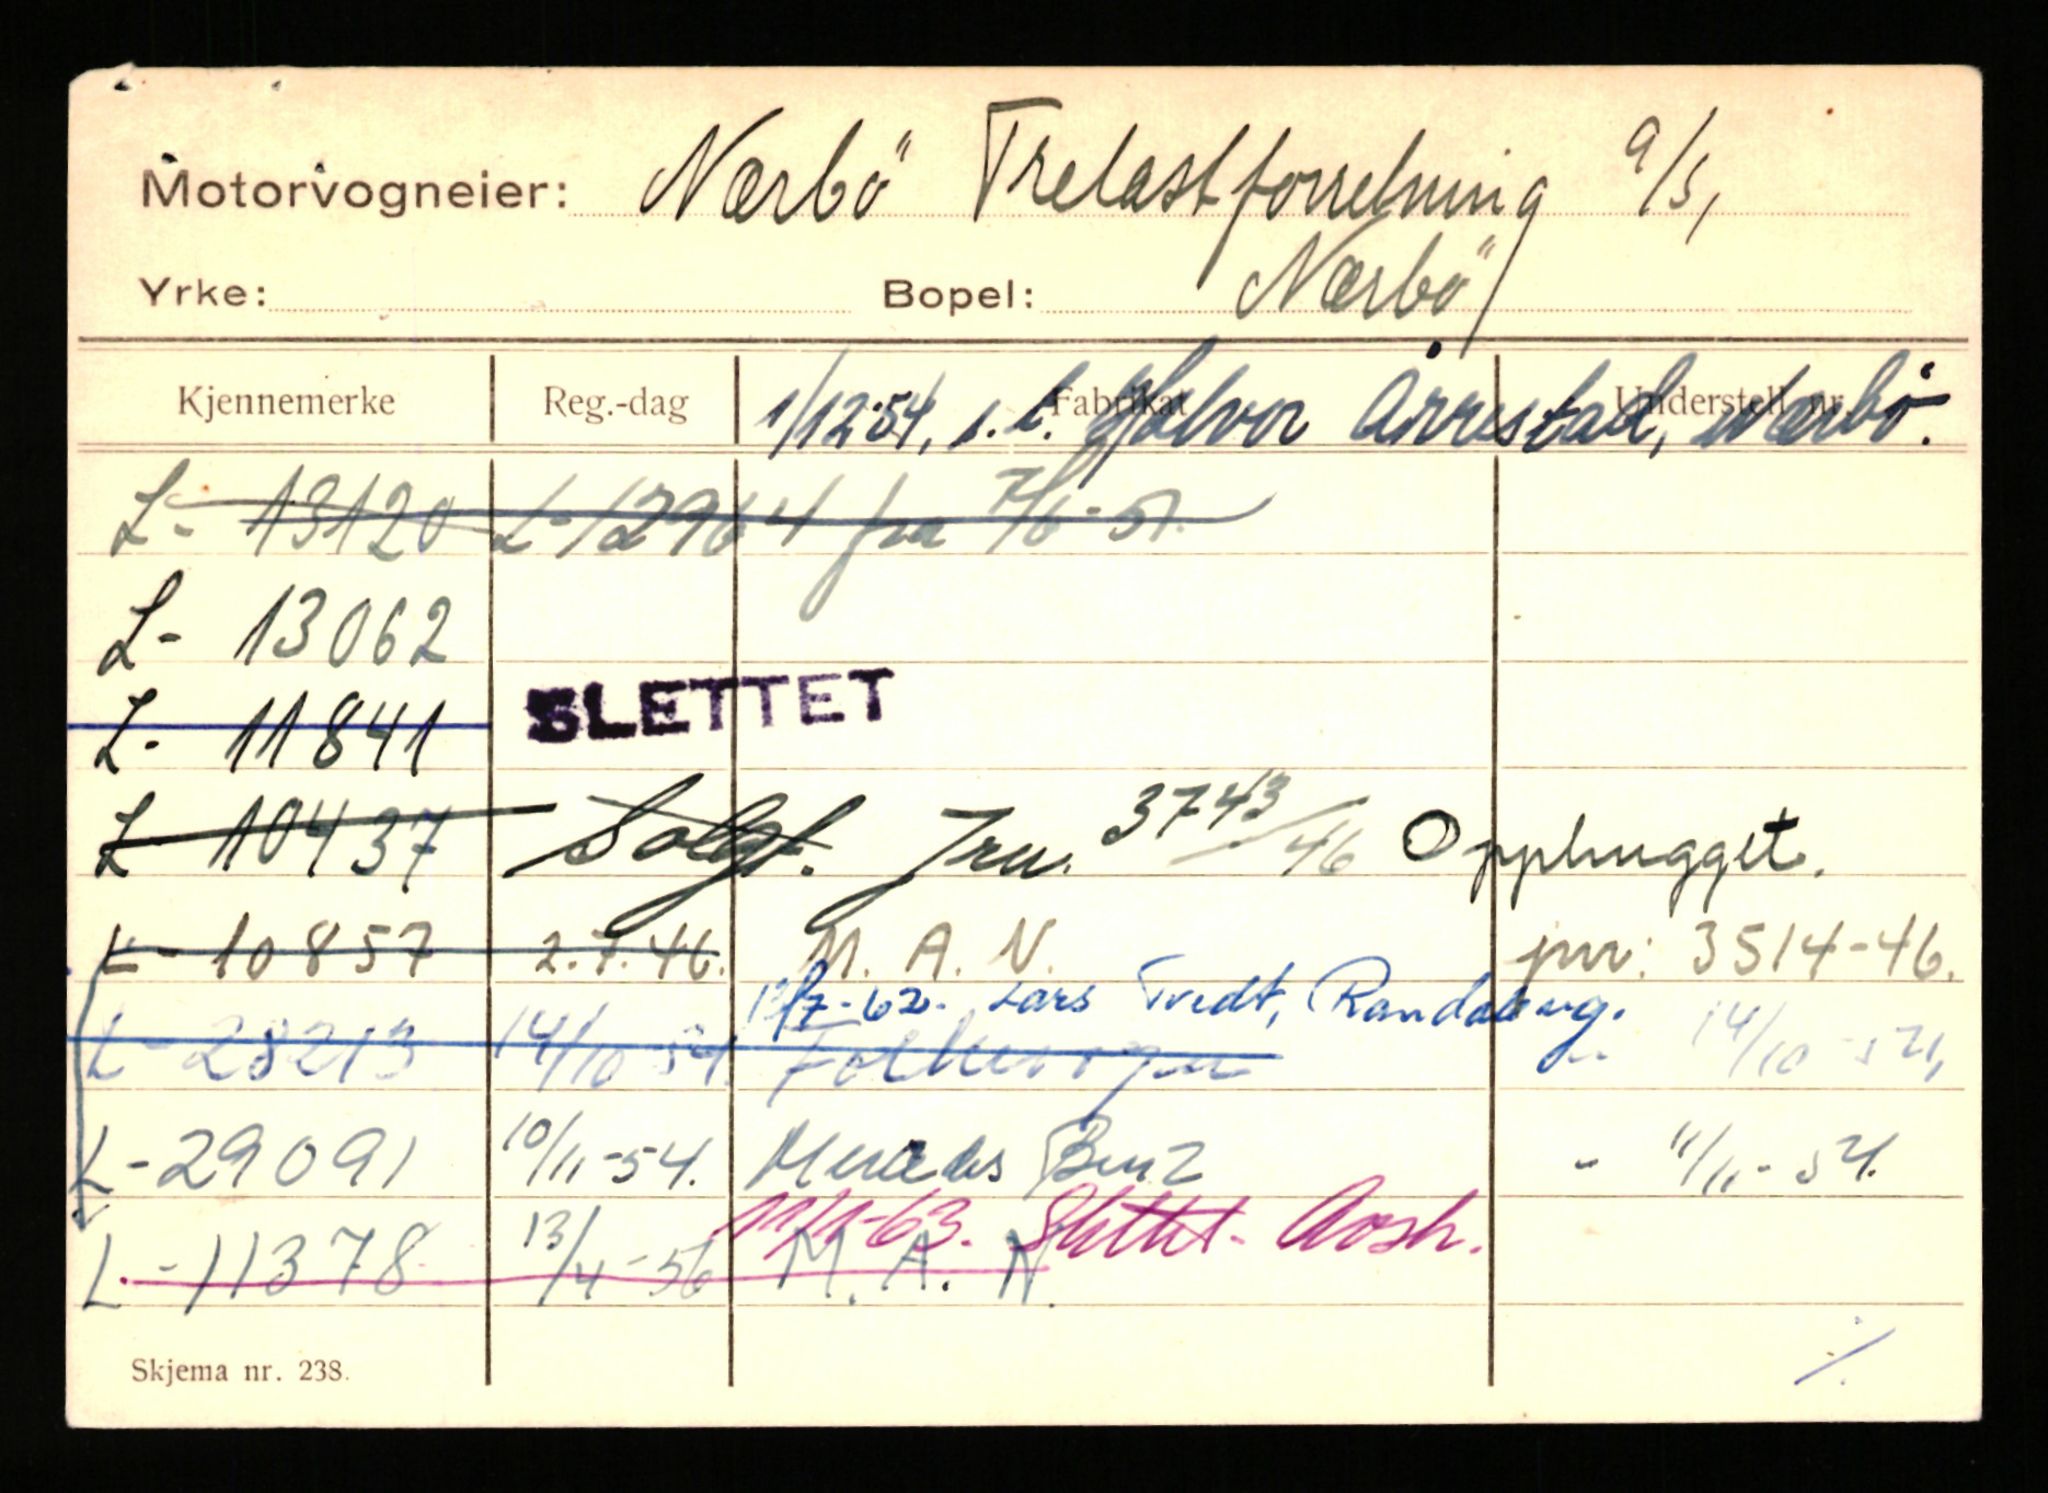 Motorvogneier: Nærbö Trelastforretning a/s,
Yrke: Bopel: Nærbö
Kjennemerke Reg.-dag Fabrikat Understell nr.
1/12-54, s. l. Halvor Årrestad, Nærbö.
L- 13120 L-12964 fra 7/6-51.
L- 13062
L- 11841 SLETTET
L 10437 Solgt. Jnr. 3743/46 Opphugget.
L- 10857 2.7.46. M. A. N. jnr: 3514-46.
12/7-62. Lars Tvedt, Randaberg.
L- 28213 14/10-54. Folkevogn - 14/10-54,
L-29091 10/11-54. Mercedes Benz - 11/11-54.
11/1-63. Slettet. Avsk.
L.-11378 13/4-56 M. A. N.
Skjema nr. 238.